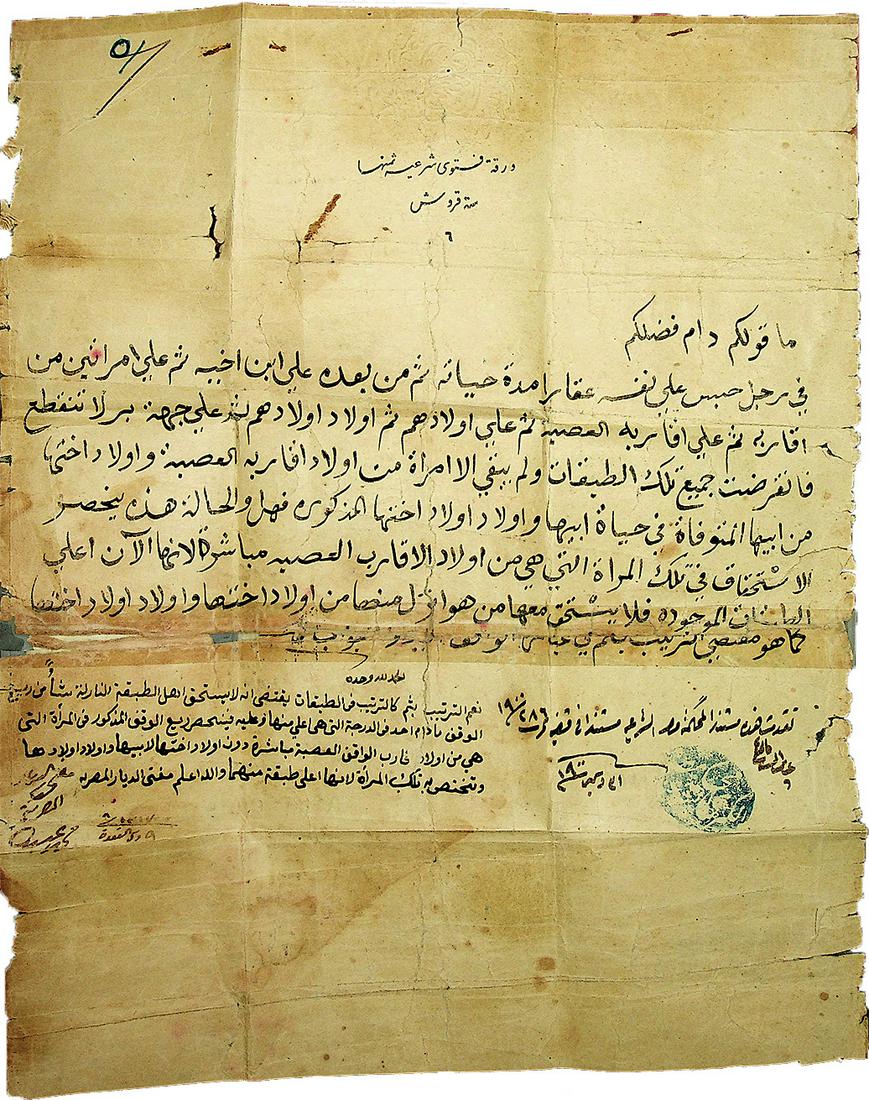 ٥١
ورقة فتوى شرعيه ثمنها
ستة قروش
٦
ما قولكم دام فضلكم
في رجل حبس علي نفسه عقارا مدة حياته ثم من بعده علي ابن اخيه ثم علي امراتين من
اقاربه ثم علي اقاربه العصبه ثم علي اولادهم ثم اولاد اولادهم ثم علي جهة بر لا تنقطع
فانقرضت جميع تلك الطبقات ولم يبقي الا امراة من اولاد اقاربه العصبة واولاد اختها
من ابيها المتوفاة في حياة ابيها واولاد اولاد اختها المذكوره فهل والحالة هذه ينحصر
الاستحقاق في تلك المراة التي هي من اولاد الاقارب العصبه مباشرة لانها الآن اعلي
الطبقات الموجوده فلا يستحق معها من هو انزل منها من اولاد اختها واولاد اولاد اختها
كما هو مقتضي الترتيب بثم في
الحمد لله وحده
نعم الترتيب بثم كالترتيب في الطبقات يقتضى انه لا يستحق اهل الطبقة النازلة شأ من ريع
الوقف ما دام احد فى الدرجة التى هى اعلى منها وعليه فينحصر ريع الوقف المذكور فى المرأة التى
هى من اولاد اقارب الواقف العصبة مباشرة دون اولاد اختها لابيها واولاد اولادها
وتختص به تلك المرأة لانها اعلى طبقة منهما والله اعلم مفتى الديار المصرية
تقدمت هذه مستندا لمحكمة مصر الشرعيه مستندا في قضية
٩ ذى القعدة